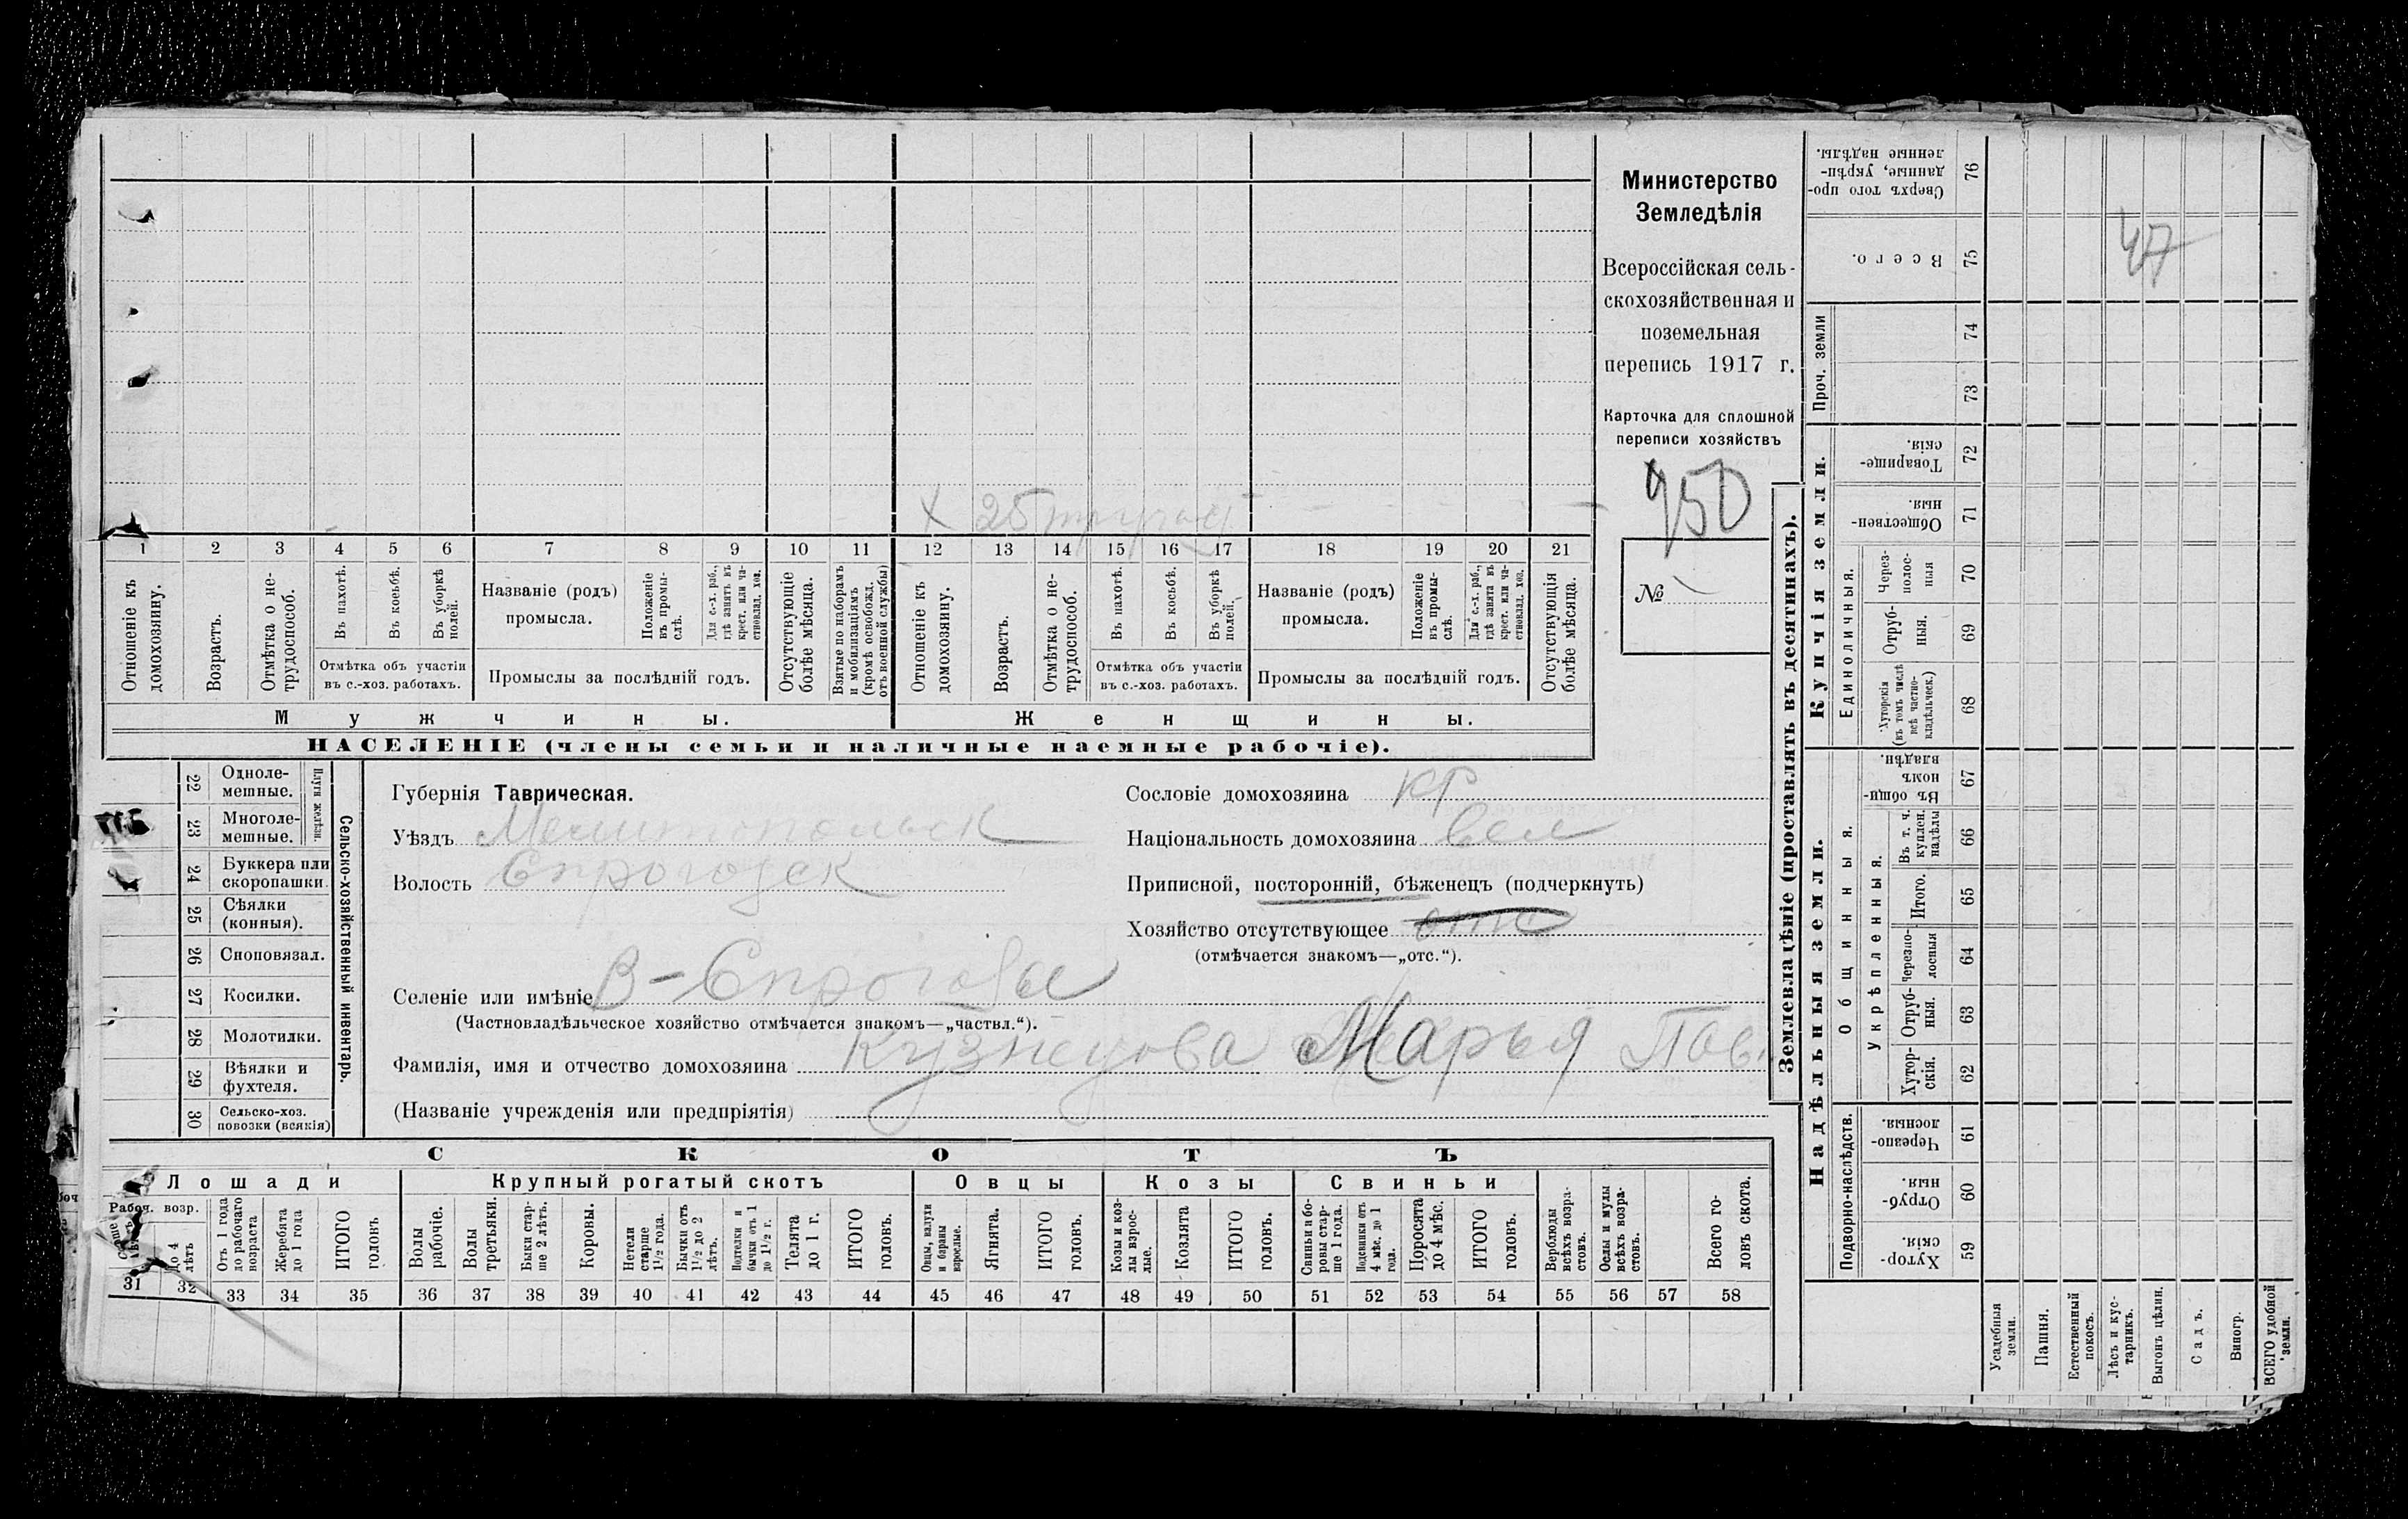 Министерство
Земледѣлія
Всероссійская сель-
скохозяйственная и
поземельная
перепись 1917 г.
Карточка для сплошной
переписи хозяйствъ
950
№
х 25
1 2 3 4 5 6 7 8 9 10 11 12 13 14 15 16 17 18 19 20 21
Отношеніе къ домохозяину.
Возрастъ.
Отмѣтка о не-трудоспособ.
Въ пахотѣ.
Въ косьбѣ.
Въ уборкѣ полей.
Названіе (родъ) промысла.
Положеніе въ промы-слѣ.
Для с.-х. раб., гдѣ занятъ въ крест. или ча-стновлад. хоз.
Отсутствующіе болѣе мѣсяца.
Взятые по наборамъ и мобилизаціямъ (кромѣ освобожд. отъ военной службы)
Отношеніе къ домохозяину.
Возрастъ.
Отмѣтка о не-трудоспособ.
Въ пахотѣ.
Въ косьбѣ.
Въ уборкѣ полей.
Названіе (родъ) промысла.
Положеніе въ промы-слѣ.
Для с.-х. раб., гдѣ занята въ крест. или ча-стновлад. хоз.
Отсутствующія болѣе мѣсяца.
Отмѣтка объ участіи въ с.-хоз. работахъ.
Промыслы за послѣдній годъ.
Отмѣтка объ участіи въ с.-хоз. работахъ.
Промыслы за послѣдній годъ.
Мужчины.
Женщины.
НАСЕЛЕНІЕ (члены семьи и наличные наемные рабочіе).
22 Одноле-мешные.
23 Многоле-мешные.
Плуги желѣзн.
24 Буккера или скоропашки.
25 Сѣялки (конныя).
26 Сноповязал.
27 Косилки.
28 Молотилки.
29 Вѣялки и фухтеля.
30 Сельско-хоз. повозки (всякія)
Сельско-хозяйственный инвентарь.
Губернія Таврическая.
Уѣздъ Мелитопольск
Волость
Селеніе или имѣніе
(Частновладѣльческое хозяйство отмѣчается знакомъ—„частвл.“).
Фамилія, имя и отчество домохозяина Кузнецова Марья Пав
(Названіе учрежденія или предпріятія)
Сословіе домохозяина кр
Національность домохозяина вел
Приписной, посторонній, бѣженецъ (подчеркнуть)
Хозяйство отсутствующее отс
(отмѣчается знакомъ—„отс.“).
СКОТЪ
Лошади
Крупный рогатый скотъ
Овцы
Козы
Свиньи
Рабоч. возр.
До 4 лѣтъ
Отъ 1 года до рабочаго возраста
Жеребята до 1 года
ИТОГО головъ
Волы рабочіе.
Волы третьяки.
Быки стар-ше 2 лѣтъ.
Коровы.
Нетели старше 1½ года.
Бычки отъ 1½ до 2 лѣтъ.
Подтелки и бычки отъ 1 до 1½ г.
Телята до 1 г.
ИТОГО головъ.
Овцы, валухи и бараны взрослые.
Ягнята.
ИТОГО головъ.
Козы и коз-лы взрос-лые.
Козлята
ИТОГО головъ.
Свиньи и бо-ровы стар-ше 1 года.
Подсвинки отъ 4 мѣс. до 1 года.
Поросята до 4 мѣс.
ИТОГО головъ.
Верблюды всѣхъ возра-стовъ.
Ослы и мулы всѣхъ возра-стовъ.
Всего го-ловъ скота.
31 32 33 34 35 36 37 38 39 40 41 42 43 44 45 46 47 48 49 50 51 52 53 54 55 56 57 58
Землевладѣніе (проставлять въ десятинахъ).
Надѣльныя земли.
Купчія земли.
Проч. земли
Подворно-наслѣдств.
Общинныя.
Укрѣпленныя.
Единоличныя.
76 Сверхъ того про-данные, укрѣп-ленные надѣлы.
75 Всего.
47
74
73
72 Товарище-скія.
71 Обществен-ныя.
70 Через-полос-ныя
69 Отруб-ныя.
68 Хуторскія (въ томъ числѣ всѣ частно-владѣльческ.)
67 Въ общи-номъ владѣн.
66 Въ т. ч. куплен. надѣлы
65 Итого.
64 Черезпо-лосныя
63 Отруб-ныя.
62 Хутор-скія.
61 Черезпо-лосныя.
60 Отруб-ныя.
59 Хутор-скія.
Усадебныя земли.
Пашня.
Естественный покосъ.
Лѣсъ и кус-тарникъ.
Выгонъ цѣлин.
Садъ.
Виногр.
ВСЕГО удобной земли.